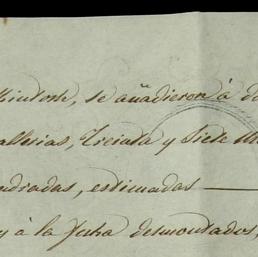 se añadieron á
Treinta y Siete
cuadradas, estimadas
y á la fecha desmontados,